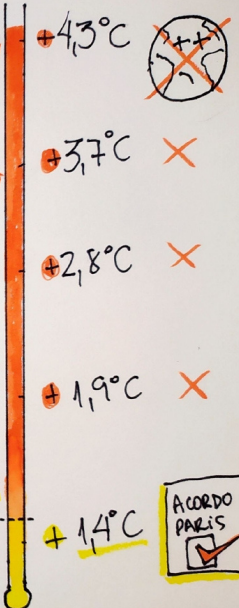 +4,3°C
+3,7°C
+2,8°C
+1,9°C
+1,4°C
ACORDO
PARIS